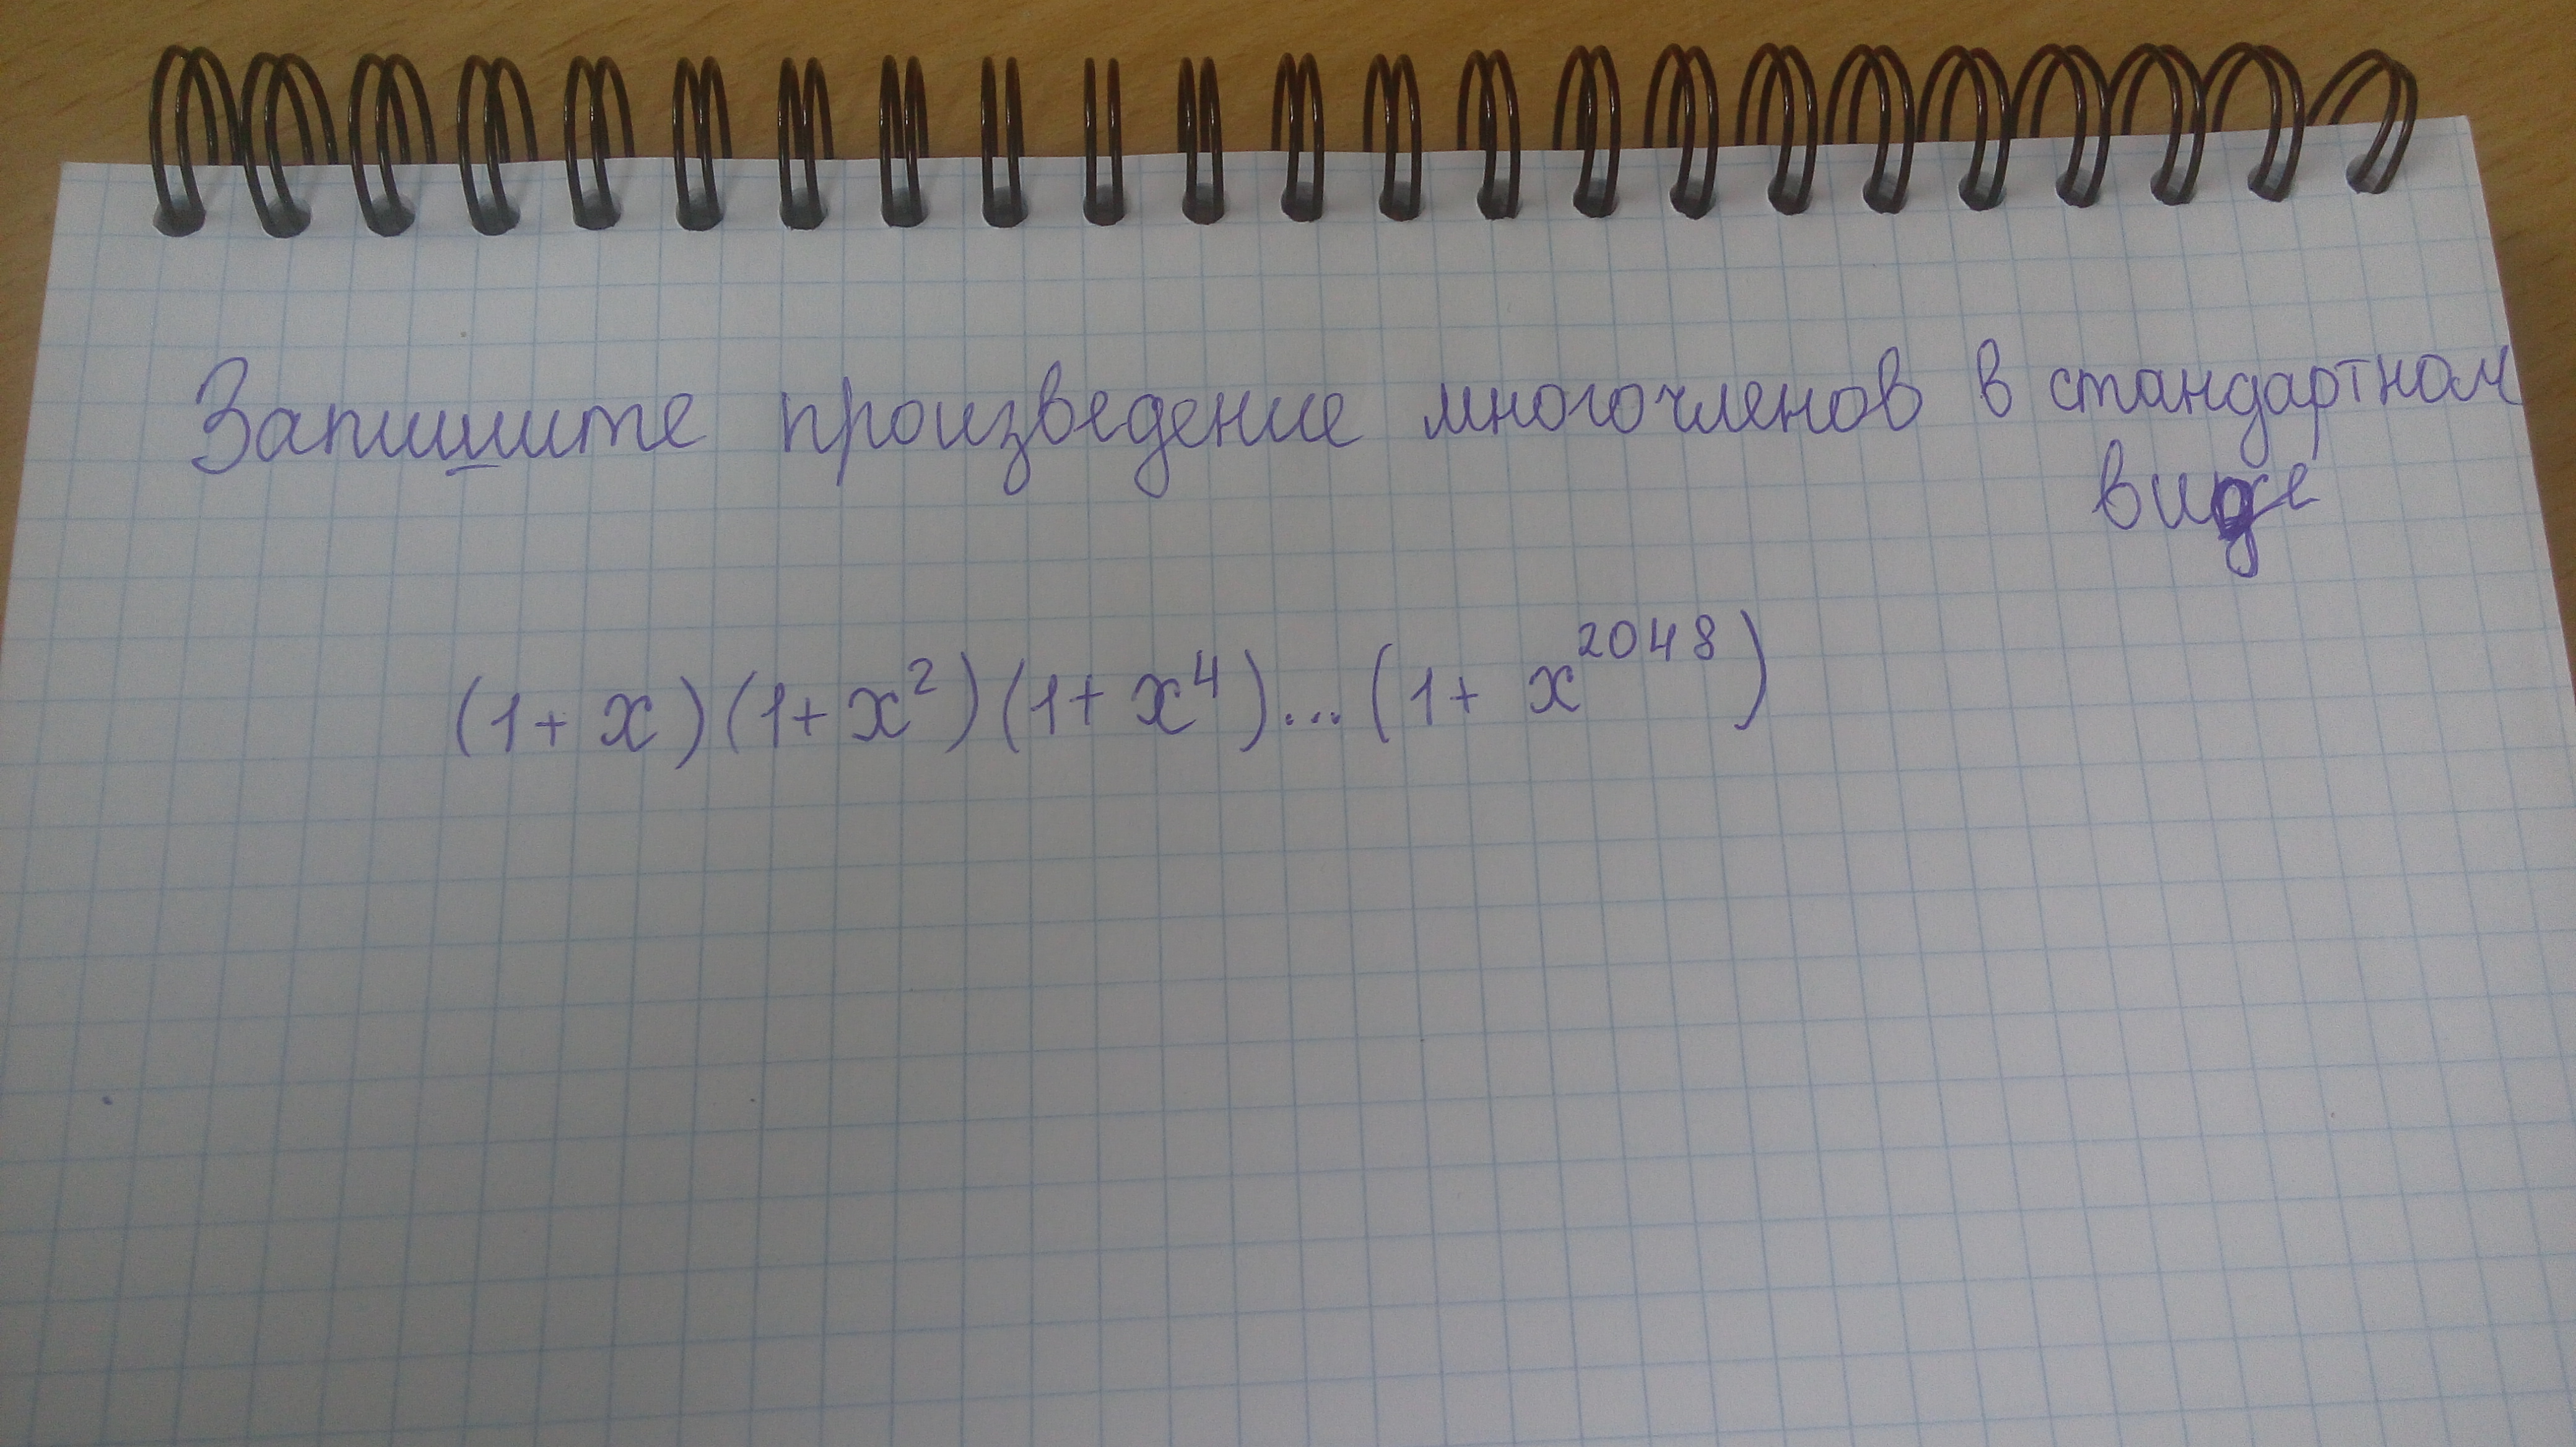 Запишите произведение многочленов в стандартном
виде
(1+x)(1+x²)(1+x⁴)...(1+x²⁰⁴⁸)